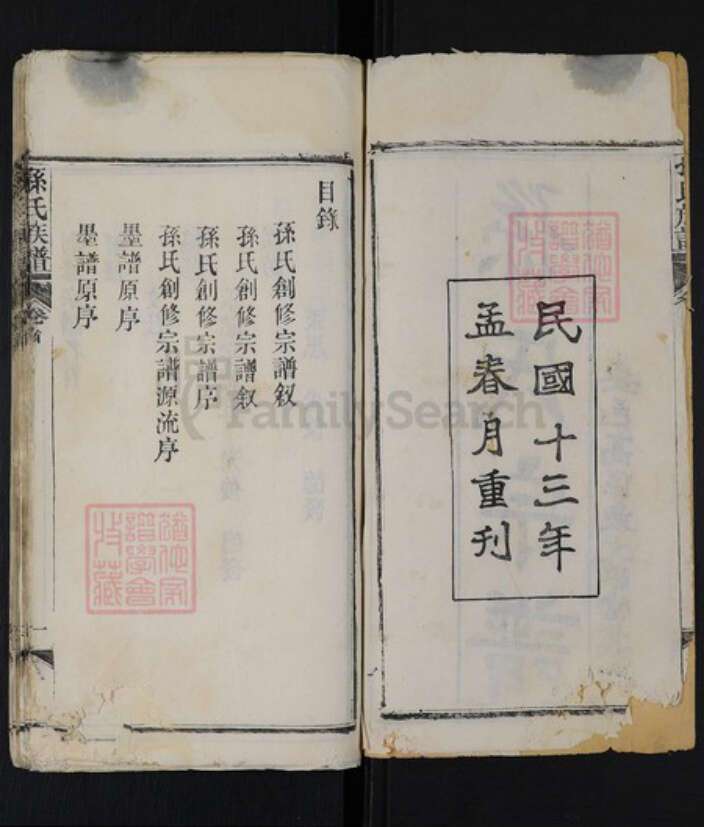 民國十三年
孟春月重刊
目錄
孫氏創修宗譜叙
孫氏創修宗譜敘
孫氏創修宗譜序
孫氏創修宗譜源流序
墨譜原序
墨譜原序
孫氏族譜 卷首
FamilySearch